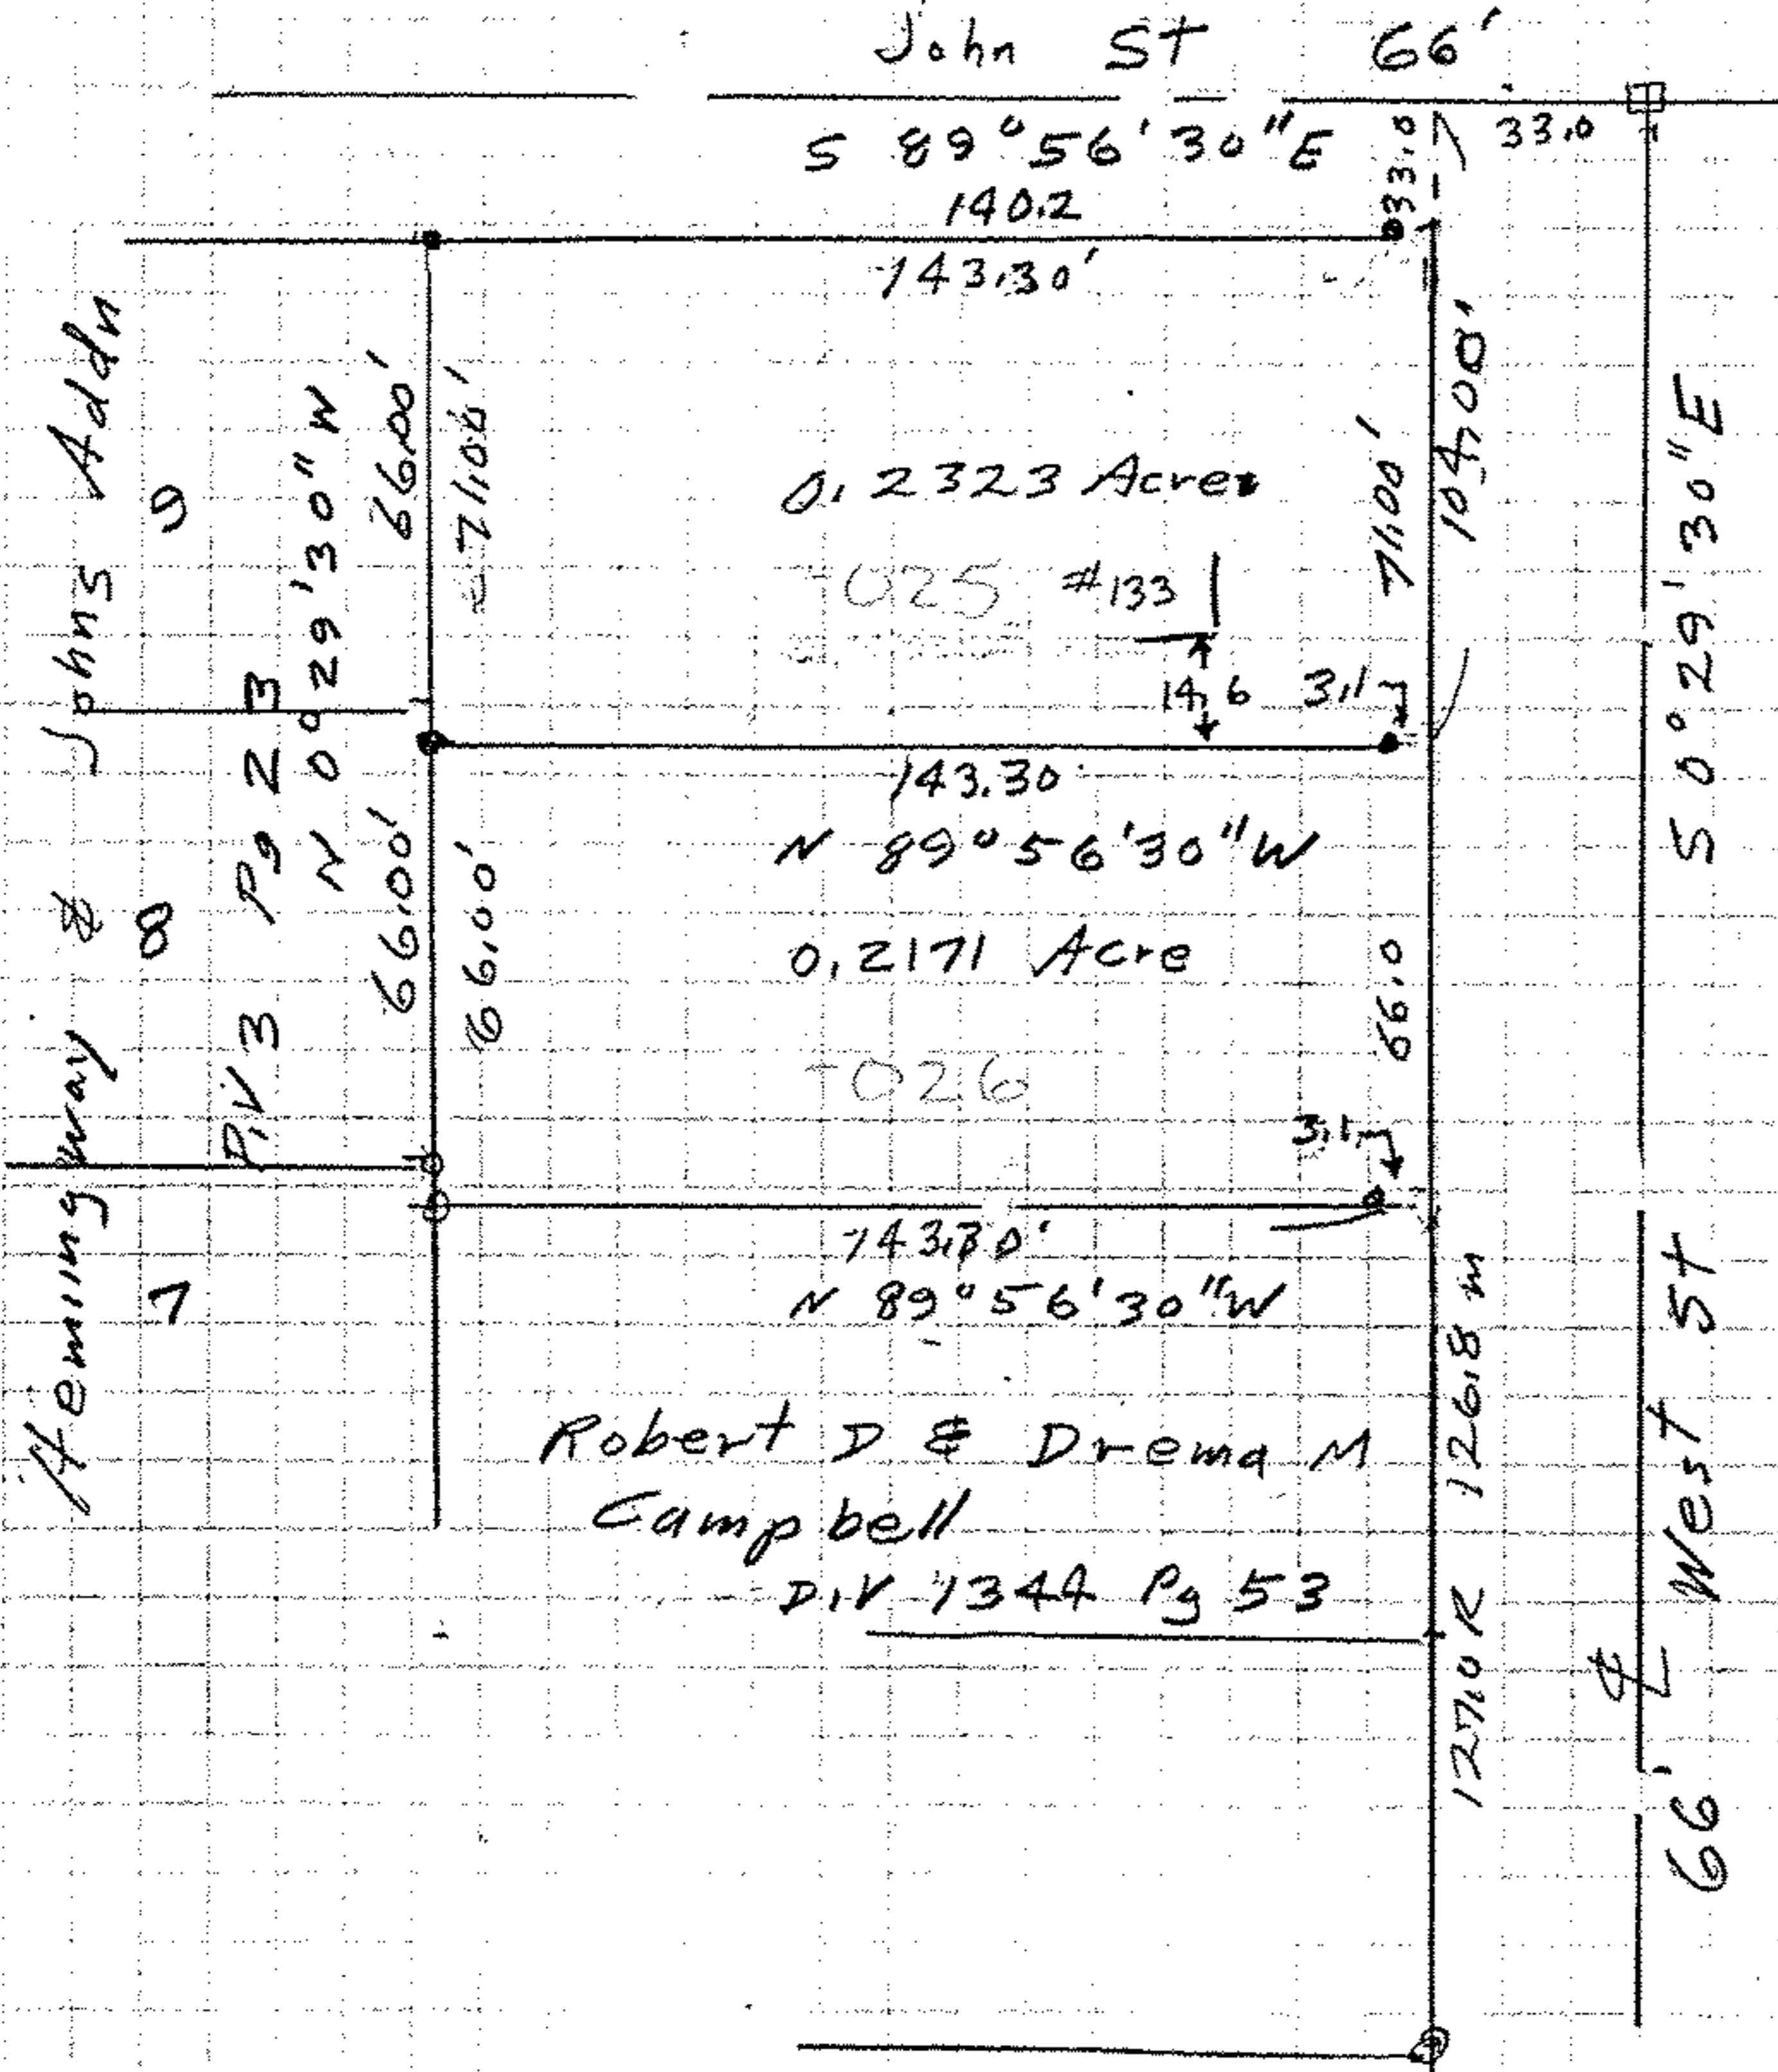 John St 66'
S 89°56'30"E
33.0
33.0
140.2
143.30'
Hemingway & Johns Addn
9
P.V 3 Pg 23
N 0°29'30"W
66.00'
71.00'
0.2323 Acre
71.00'
104.00'
-025 #133
14.6
3.1
S 0°29'30"E
143.30
N 89°56'30"W
8
66.00'
66.00'
0.2171 Acre
66.0
-026
3.1
143.30'
N 89°56'30"W
7
Robert D & Drema M
Campbell
D.V 1344 Pg 53
127.0 R 126.8 m
66' ℄ West St